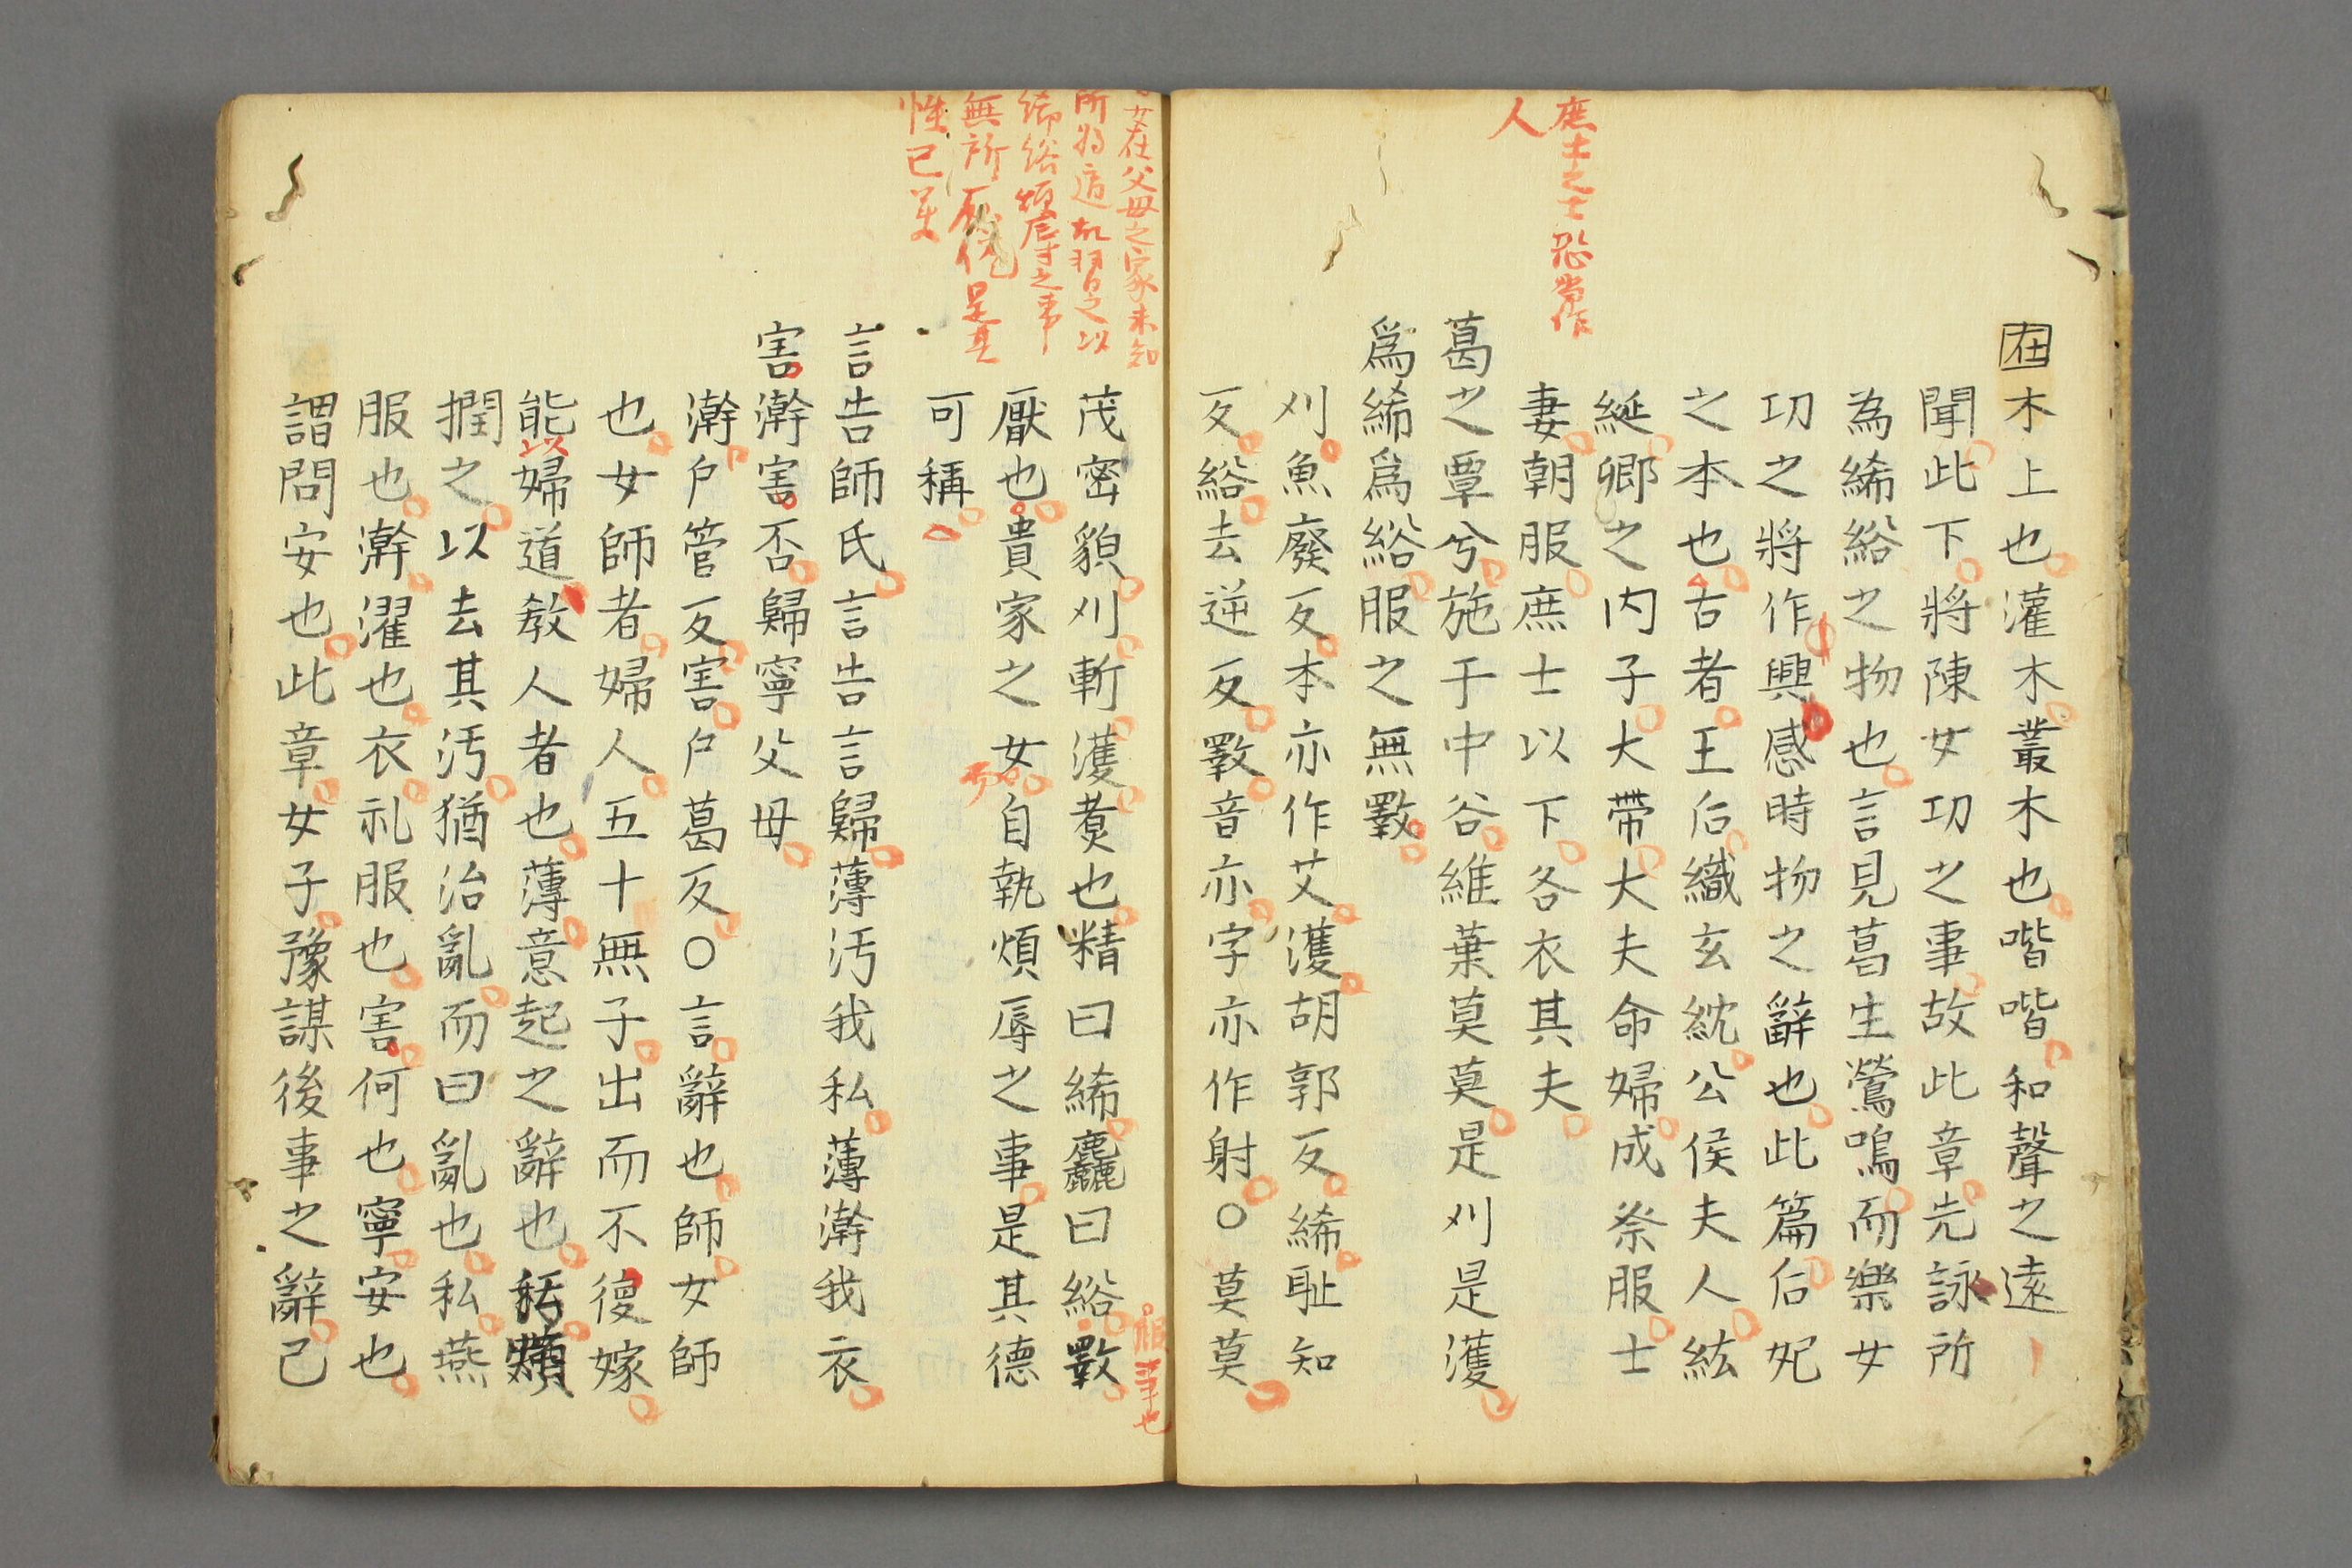 庶士之士恐當作
人
在木上也灌木叢木也喈喈和聲之遠
聞此下將陳女功之事故此章先詠所
為絺綌之物也言見葛生鶯鳴而樂女
功之將作興感時物之辭也此篇后妃
之本也古者王后織玄紞公侯夫人紘
綖卿之内子大帶大夫命婦成祭服士
妻朝服庶士以下各衣其夫
葛之覃兮施于中谷維葉莫莫是刈是濩
爲絺爲綌服之無斁
刈魚廢反本亦作艾濩胡郭反絺耻知
反綌去逆反斁音亦字亦作射○莫莫
女在父母之家未知
所將適故習之以
絺綌煩辱之事
無所厭倦是其
性已美
茂密貌刈斬濩煑也精曰絺麤曰綌斁
服事也
厭也貴家之女自執煩辱之事是其德
可稱
言告師氏言告言歸薄汚我私薄澣我衣
害澣害否歸寧父母
澣戶管反害戶葛反○言辭也師女師
也女師者婦人五十無子出而不復嫁
能以婦道教人者也薄意起之辭也汚煩
撋之以去其汚猶治亂而曰亂也私燕
服也澣濯也衣礼服也害何也寧安也
謂問安也此章女子豫謀後事之辭己